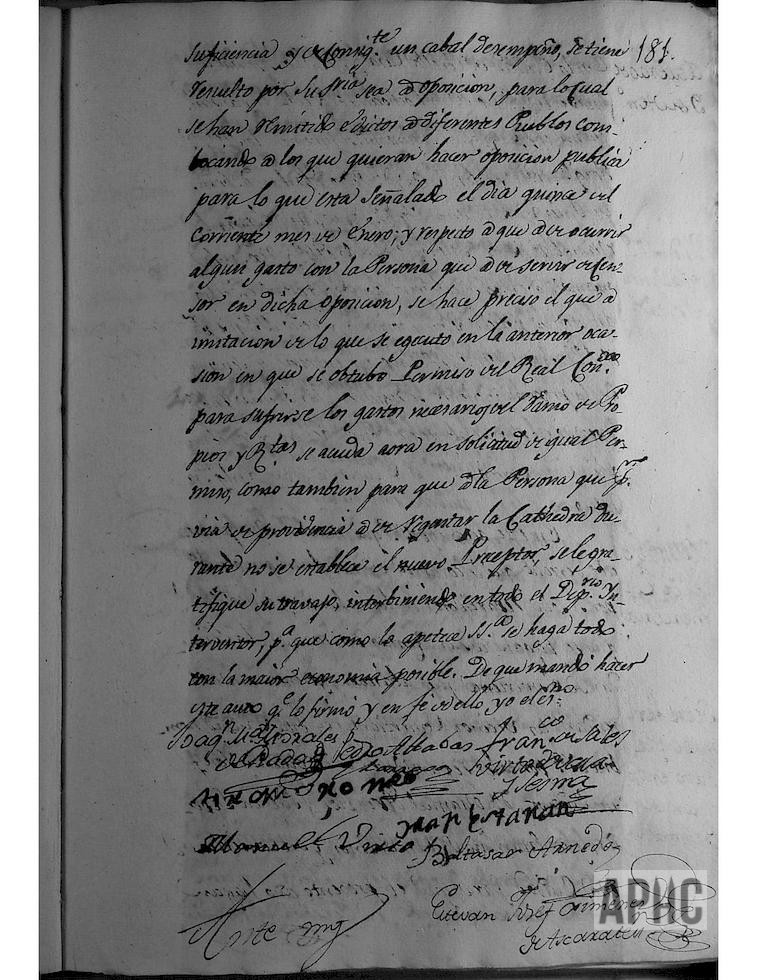 suficiencia y de consig.te un cabal desempeño, se tiene 181.
resuelto por su sria sea a oposicion, para lo cual
se han remitido edictos a diferentes Pueblos com-
bocando a los que quieran hacer oposicion publica
para lo que esta señalado el dia quince del
corriente mes de Enero; y respecto a que a de ocurrir
algun gasto con la Persona que a de servir de Cen-
sor en dicha oposicion, se hace preciso el que a
imitacion de lo que se egecuto en la anterior oca-
sion en que se obtubo Permiso del Real Con.
para sufrirse los gastos necesarios del Ramo de Pro
pios y R.tas se acuda aora en solicitud de igual Per-
miso, como tambien para que a la Persona que p.r
via de providencia a de regentar la Cathedra du-
rante no se establece el nuevo Preceptor, se le gra-
tifique su travajo, interbiniendo en todo el Dip.rio Yn-
terventor, p.a que como lo apetece SS.a se haga todo
con la maior economia posible. De que mandó hacer
este auto q.e lo firmó y en fe de ello, yo el es.no
Joaq.n M.a Morales Pedro Altabas Fran.co de Sales
Virto de Vera
Ysesma
Juan Estañan
Manuel Virto Baltasar Arnedo
Ante my Estevan Josef Ximenez
de Ascarate
APHC